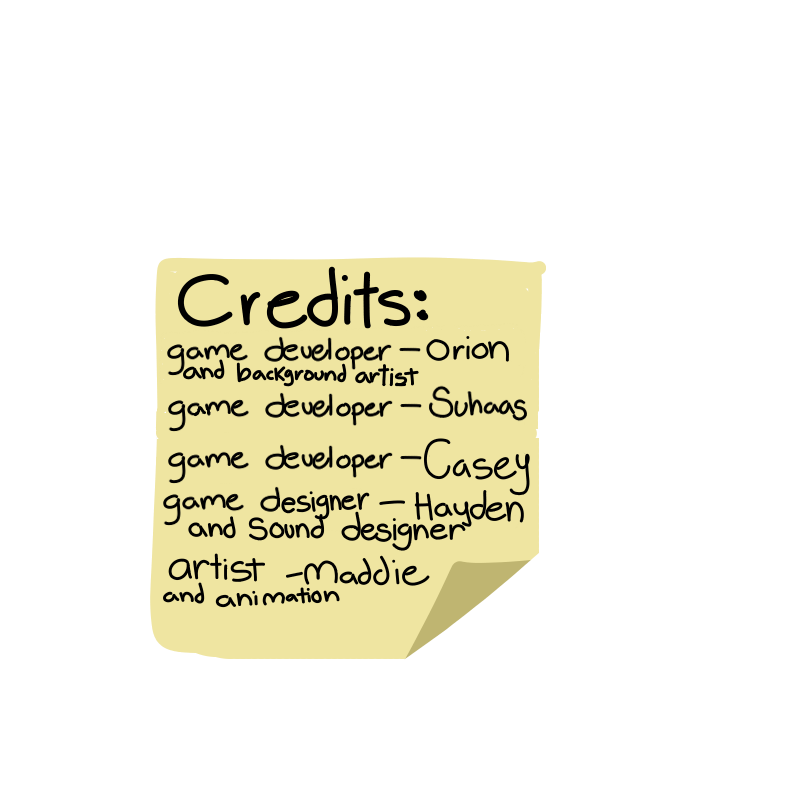 Credits:
game developer - Orion
and background artist
game developer - Suhaas
game developer - Casey
game designer - Hayden
and Sound designer
artist - Maddie
and animation